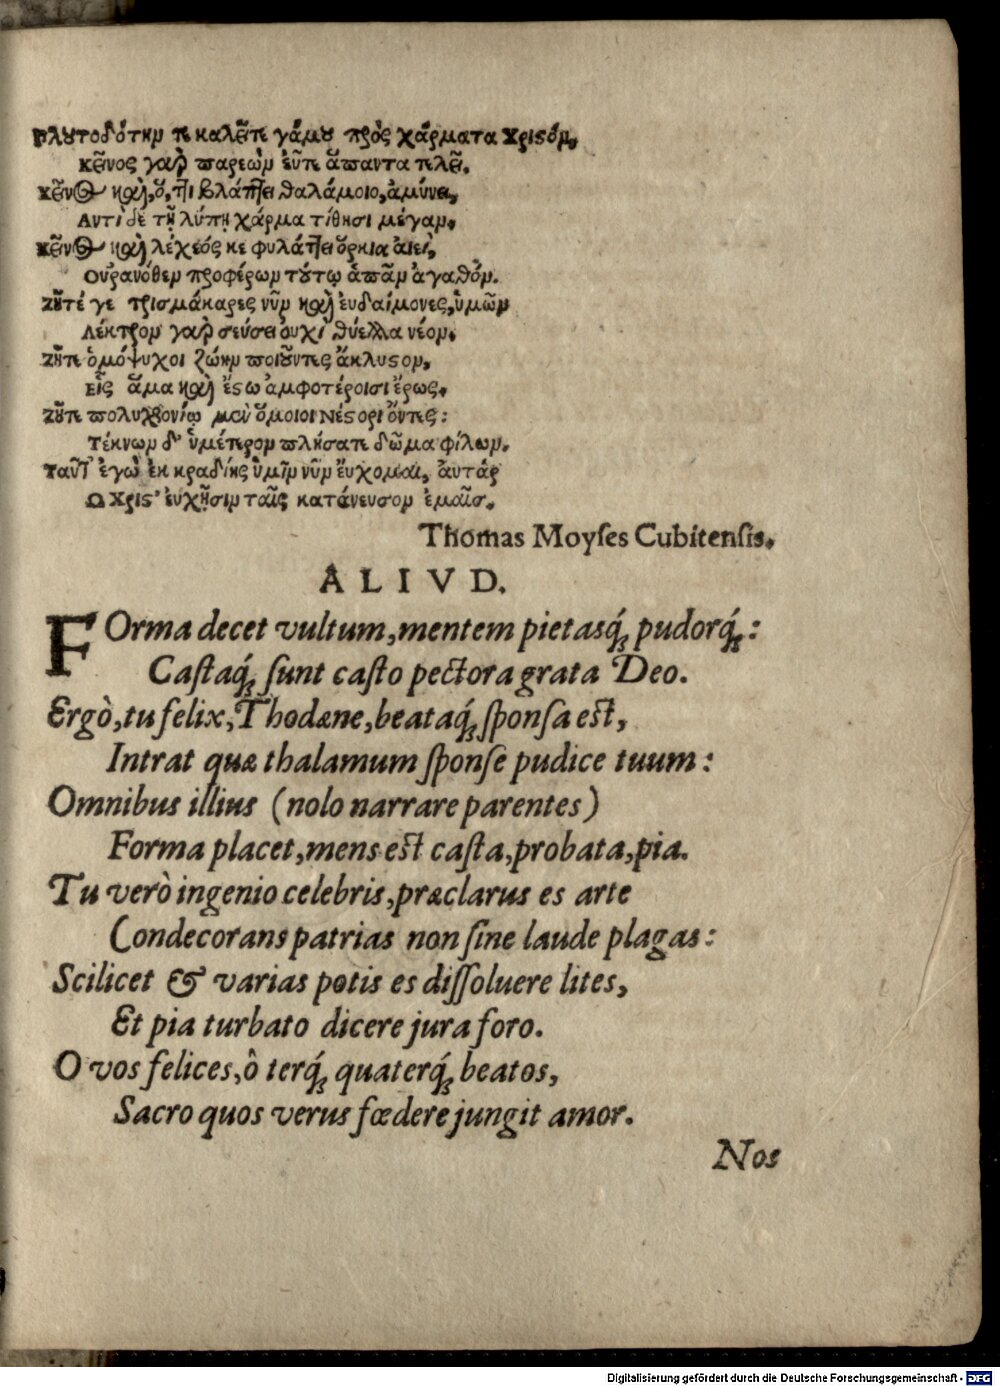 Πλουτοδότην τε καλεῖτε γάμου πρὸς χάρματα Χριστόν,
Κεῖνος γὰρ παρεὼν εὖτε ἅπαντα τελεῖ.
Κεῖνος καὶ, ὅ, τι βλάπτει θαλάμοιο, ἀμύνει,
Αντὶ δὲ τῇ λύπῃ χάρμα τίθησι μέγαν.
Κεῖνος καὶ λέχεός κε φυλάττει ὅρκια αἰεὶ,
Οὐρανόθεν προφέρων τούτῳ ἁπᾶν ἀγαθόν.
Ζῆτέ γε τρισμάκαρες νῦν καὶ ἐυδαίμονες, ὑμῶν
Λέκτρον γὰρ σεύσει ουχὶ θύελλα νέον.
Ζῆτε ὁμόψυχοι ζώην ποιοῦντες ἄκλυστον,
Εἷς ἅμα καὶ ἔστω ἀμφοτέροισι ἔρως.
Ζῆτε πολυχρονίῳ μὲν ὅμοιοι Νέστορι ὄντες:
Τέκνων δ' ὑμέτερον πλήσατε δῶμα φίλων.
Ταῦτ' ἐγὼ ἐκ κραδίης ὑμῖν νῦν ἔυχομαι, ἀυτάρ
Ω Χριστ' ἐυχῇσιν ταῖς κατάνευσον ἐμαῖς.
Thomas Moyses Cubitensis.
ALIVD.
FOrma decet vultum, mentem pietasq́; pudorq́;:
Castaq́; sunt casto pectora grata Deo.
Ergò, tu felix, Thodæne, beataq́; sponsa est,
Intrat quæ thalamum sponse pudice tuum:
Omnibus illius (nolo narrare parentes)
Forma placet, mens est casta, probata, pia.
Tu verò ingenio celebris, præclarus es arte
Condecorans patrias non sine laude plagas:
Scilicet & varias potis es dissoluere lites,
Et pia turbato dicere jura foro.
O vos felices, ô terq́; quaterq́; beatos,
Sacro quos verus fœdere jungit amor.
Nos
Digitalisierung gefördert durch die Deutsche Forschungsgemeinschaft - DFG